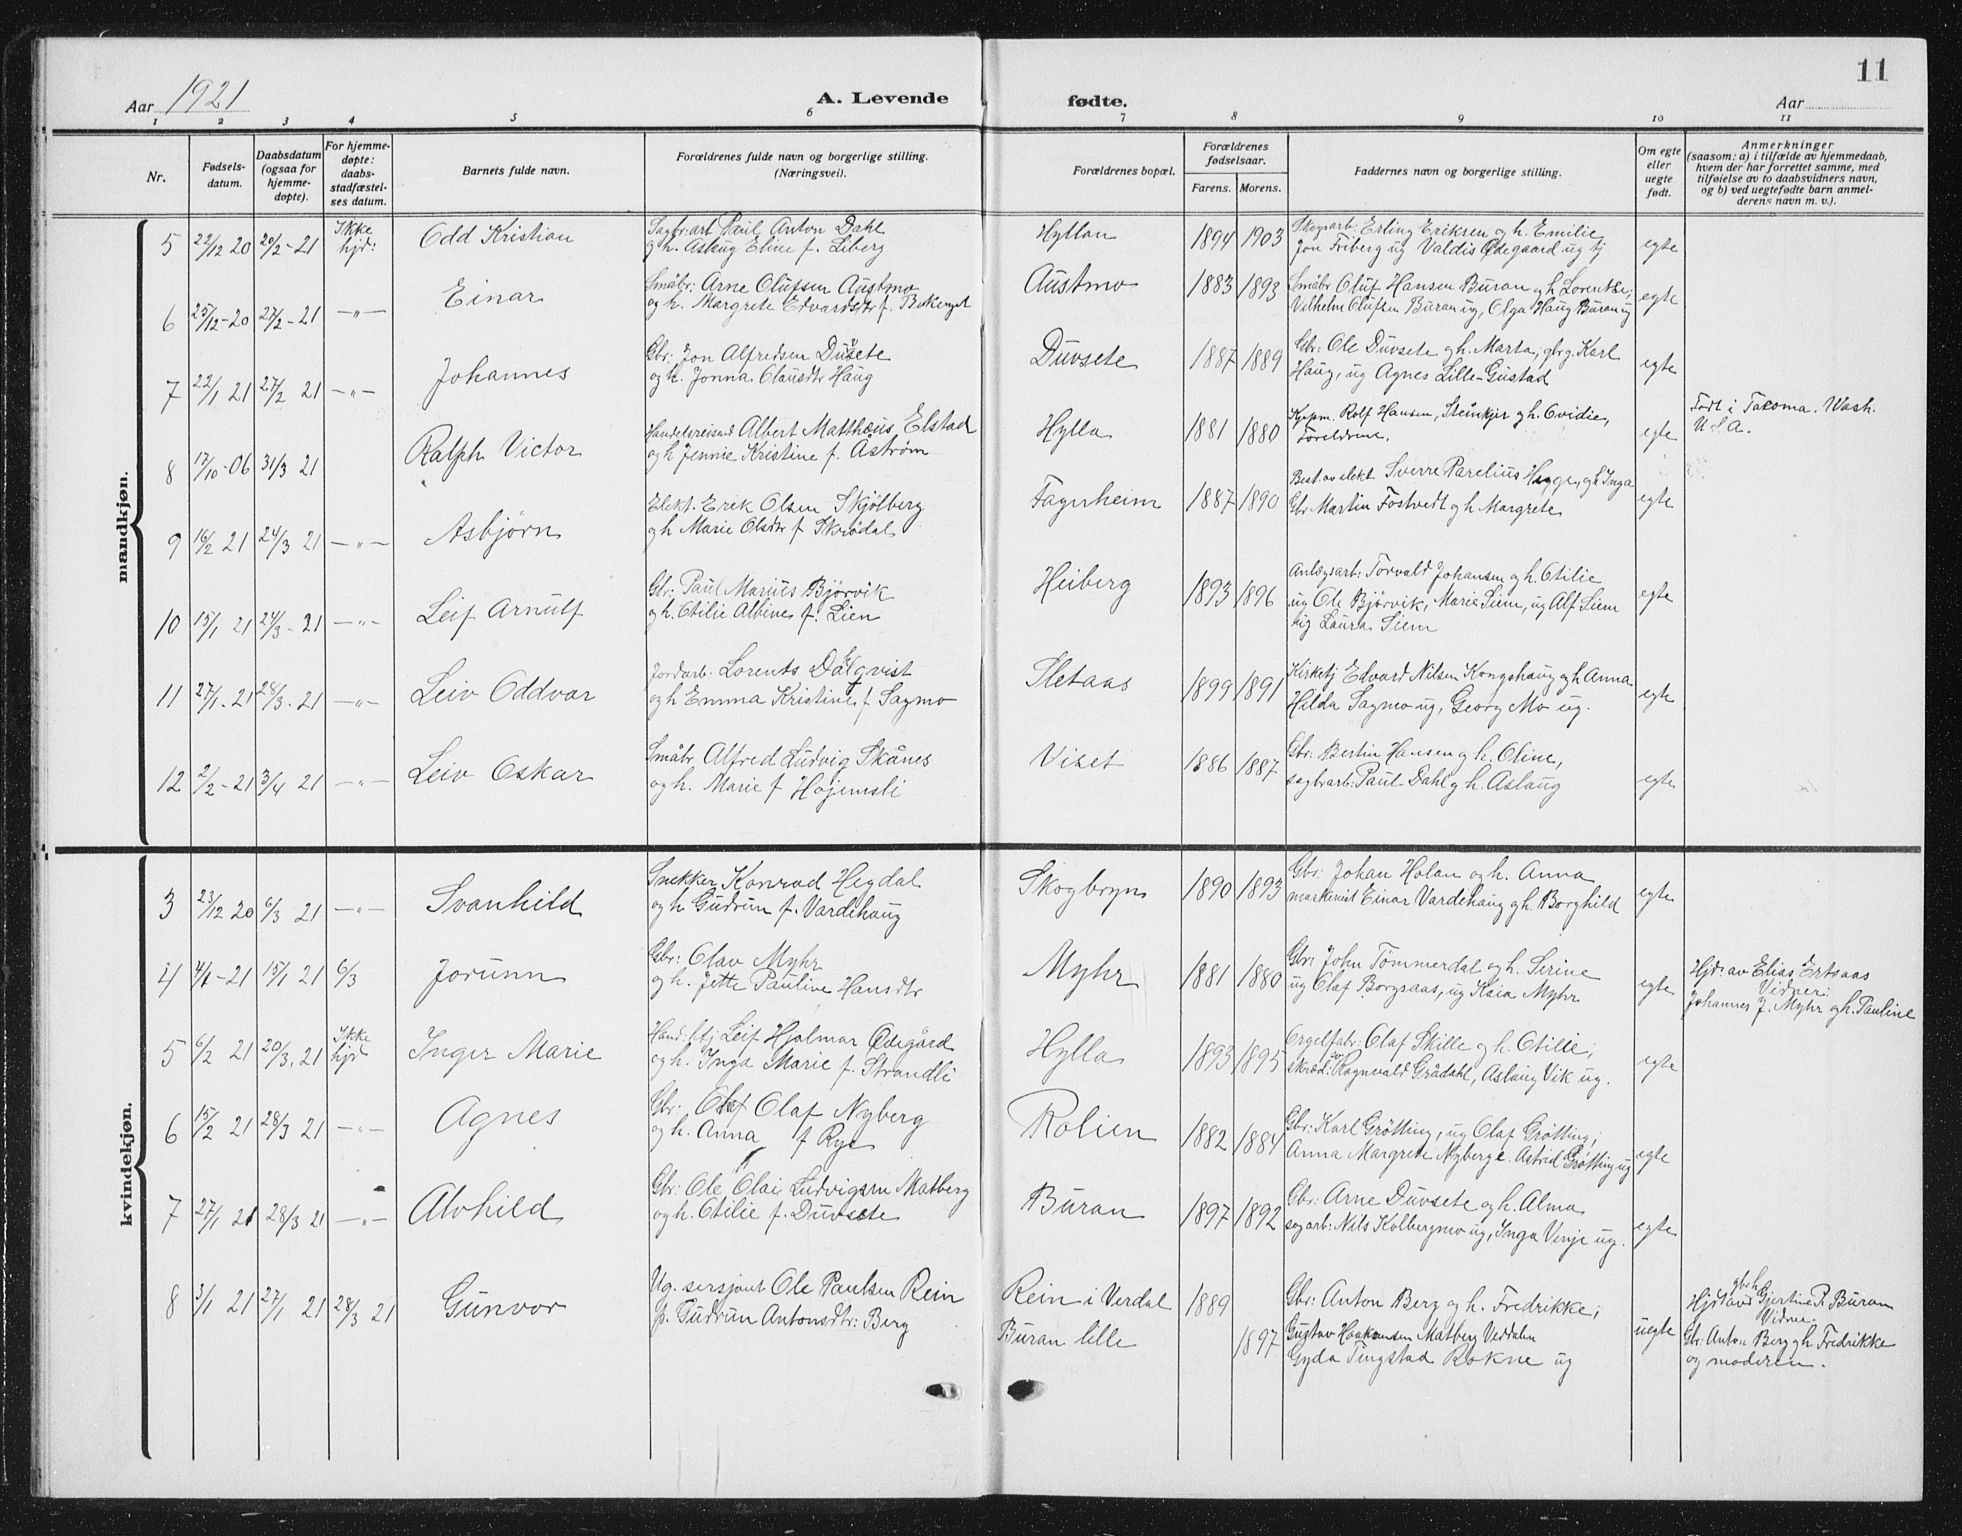 11
Aar 1921
A. Levende
fødte.
Aar
1 2 3 4 5 6 7 8 9 10 11
Nr.
Fødsels-
datum.
Daabsdatum
(ogsaa for
hjemme-
døpte).
For hjemme-
døpte:
daabs-
stadfæstel-
ses datum.
Barnets fulde navn.
Forældrenes fulde navn og borgerlige stilling.
(Næringsvei).
Forældrenes bopæl.
Forældrenes
fødselsaar.
Farens. Morens.
Faddernes navn og borgerlige stilling.
Om egte
eller
uegte
født.
Anmerkninger
(saasom: a) i tilfælde av hjemmedaab,
hvem der har forrettet samme, med
tilføielse av to daabsvidners navn,
og b) ved uegtefødte barn anmel-
derens navn m. v.).
mandkjøn.
5 22/12 20 20/2-21 Ikke hjd: Odd Kristian
Sagbr:arb Paul Anton Dahl
og h. Aslaug Eline f. Liberg
Hyllan 1894 1903
Skogsarb: Erling Eriksen og h. Emilie
Jon Friberg ug Valdis Ødegaard ug tj
egte
6 25/12-20 27/2-21 -"- Einar
Småbr: Arne Olufsen Austmo
og h. Margrete Edvardsdtr f. Bakenget
Austmo 1883 1893
Småbr Oluf Hansen Buran og h. Lorentse;
Vilhelm Olufsen Buran ug, Olga Haug Buran ug
egte
7 22/1 21 27/2 21 -"- Johannes
Gbr: Jon Alfredsen Duvsete
og h. Jonna Clausdtr Haug
Duvsete 1887 1889
Gbr: Ole Duvsete og h. Marta; gbrg. Karl
Haug, ug Agnes Lille-Gustad
egte
8 17/10-06 31/3 21 Ralph Victor
Handelsreisend Albert Matthæus Elstad
og h Jennie Kristine f. Åstrøm
Hylla 1881 1880
Kjøpm. Rolf Hansen, Steinkjer og h. Ovidie,
Foreldrene.
egte
Født i Tacoma. Wash.
U.S.A.
9 16/2 21 24/3 21 -"- Asbjørn
Elekt. Erik Olsen Skjølberg
og h Marie Olsdtr f. Skrødal
Fagerheim 1887 1890
Best. av elekt. Sverre Parelius Hegge, og h Inga
Gbr Martin Tostvedt og h Margrete
egte
10 15/1 21 24/3-21 -"- Leif Arnulf
Gbr: Paul Marius Bjørvik
og h. Otilie Albine f. Lien
Heiberg 1893 1896
Anlægsarb: Torvald Johansen og h. Otilie
ug Ole Bjørvik, Marie Siem, ug Alf Siem
ug Laura Siem
egte
11 27/1-21 28/3-21 -"- Leiv Oddvar
Jordarb. Lorents Dalqvist
og h Emma Kristine f Sagmo
Sletaas 1899 1891
Kirketj Edvard Nilsen Kongshaug og h Anna
Hilda Sagmo ug, Georg Mo ug.
egte
12 2/2-21 3/4 21 -"- Leiv Oskar
Småbr Alfred Ludvig Skånes
og h. Marie f Højemsli
Viset 1886 1887
Gbr: Bertin Hansen og h. Oline,
sagbrarb: Paul Dahl og h. Aslaug
egte
kvindekjøn.
3 23/12 20 6/3 21 -"- Svanhild
Snekker Konrad Hegdal
og h Gudrun f. Vardehaug
Skogbryn 1890 1893
Gbr: Johan Holan og h. Anna
maskinist Einar Vardehaug og h. Borghild
egte
4 4/1-21 15/1 21 6/3 Jorunn
Gbr: Olav Myhr
og h. Jette Pauline Hansdtr
Myhr 1881 1880
Gbr: John Tømmerdal og h. Serine
ug Olaf Borgsaas, ug Kaia Myhr
egte
Hjd: av Elias Ertsaas
Vidner:
Johannes J. Myhr og h. Pauline
5 6/2 21 20/3, 21 Ikke hjd Inger Marie
Hand: btj Leif Hjalmar Ødegård
og h. Inga Marie f. Strandli
Hylla 1893 1895
Orgelfabr: Olaf Skille og h. Otilie;
skræd: Ragnvald Grådahl, Aslaug Vik ug.
egte
6 15/2 21 28/3 21 -"- Agnes
Gbr: Olaf Nyberg
og h. Anna f Rye
Rolien 1882 1884
Gbr: Karl Grøtting, ug Olaf Grøtting;
Anna Margrete Nyberg e. Astrid Grøtting ug
egte
7 27/1 21 28/3 21 -"- Alvhild
Gbr: Ole Olai Ludvigsen Matberg
og h. Otilie f. Duvsete
Buran 1897 1892
Gbr: Arne Duvsete og h. Alma
sagarb: Nils Kolbergmo ug, Inga Vinje ug.
egte
8 3/1 21 27/1 21 28/3 21 Gunvor
Ug. sersjant Ole Paulsen Rein
p. Gudrun Antonsdtr: Berg
Rein i Verdal 1889
Buran lille 1897
Gbr: Anton Berg og h. Fredrikke;
Gustav Haakonsen Matberg Verdalen
Gyda Tingstad Rokne ug
uegte
gbr h
Hjd av Gjertine P. Buran
Vidner.
Gbr: Anton Berg og h Fredrikke
og moderen.